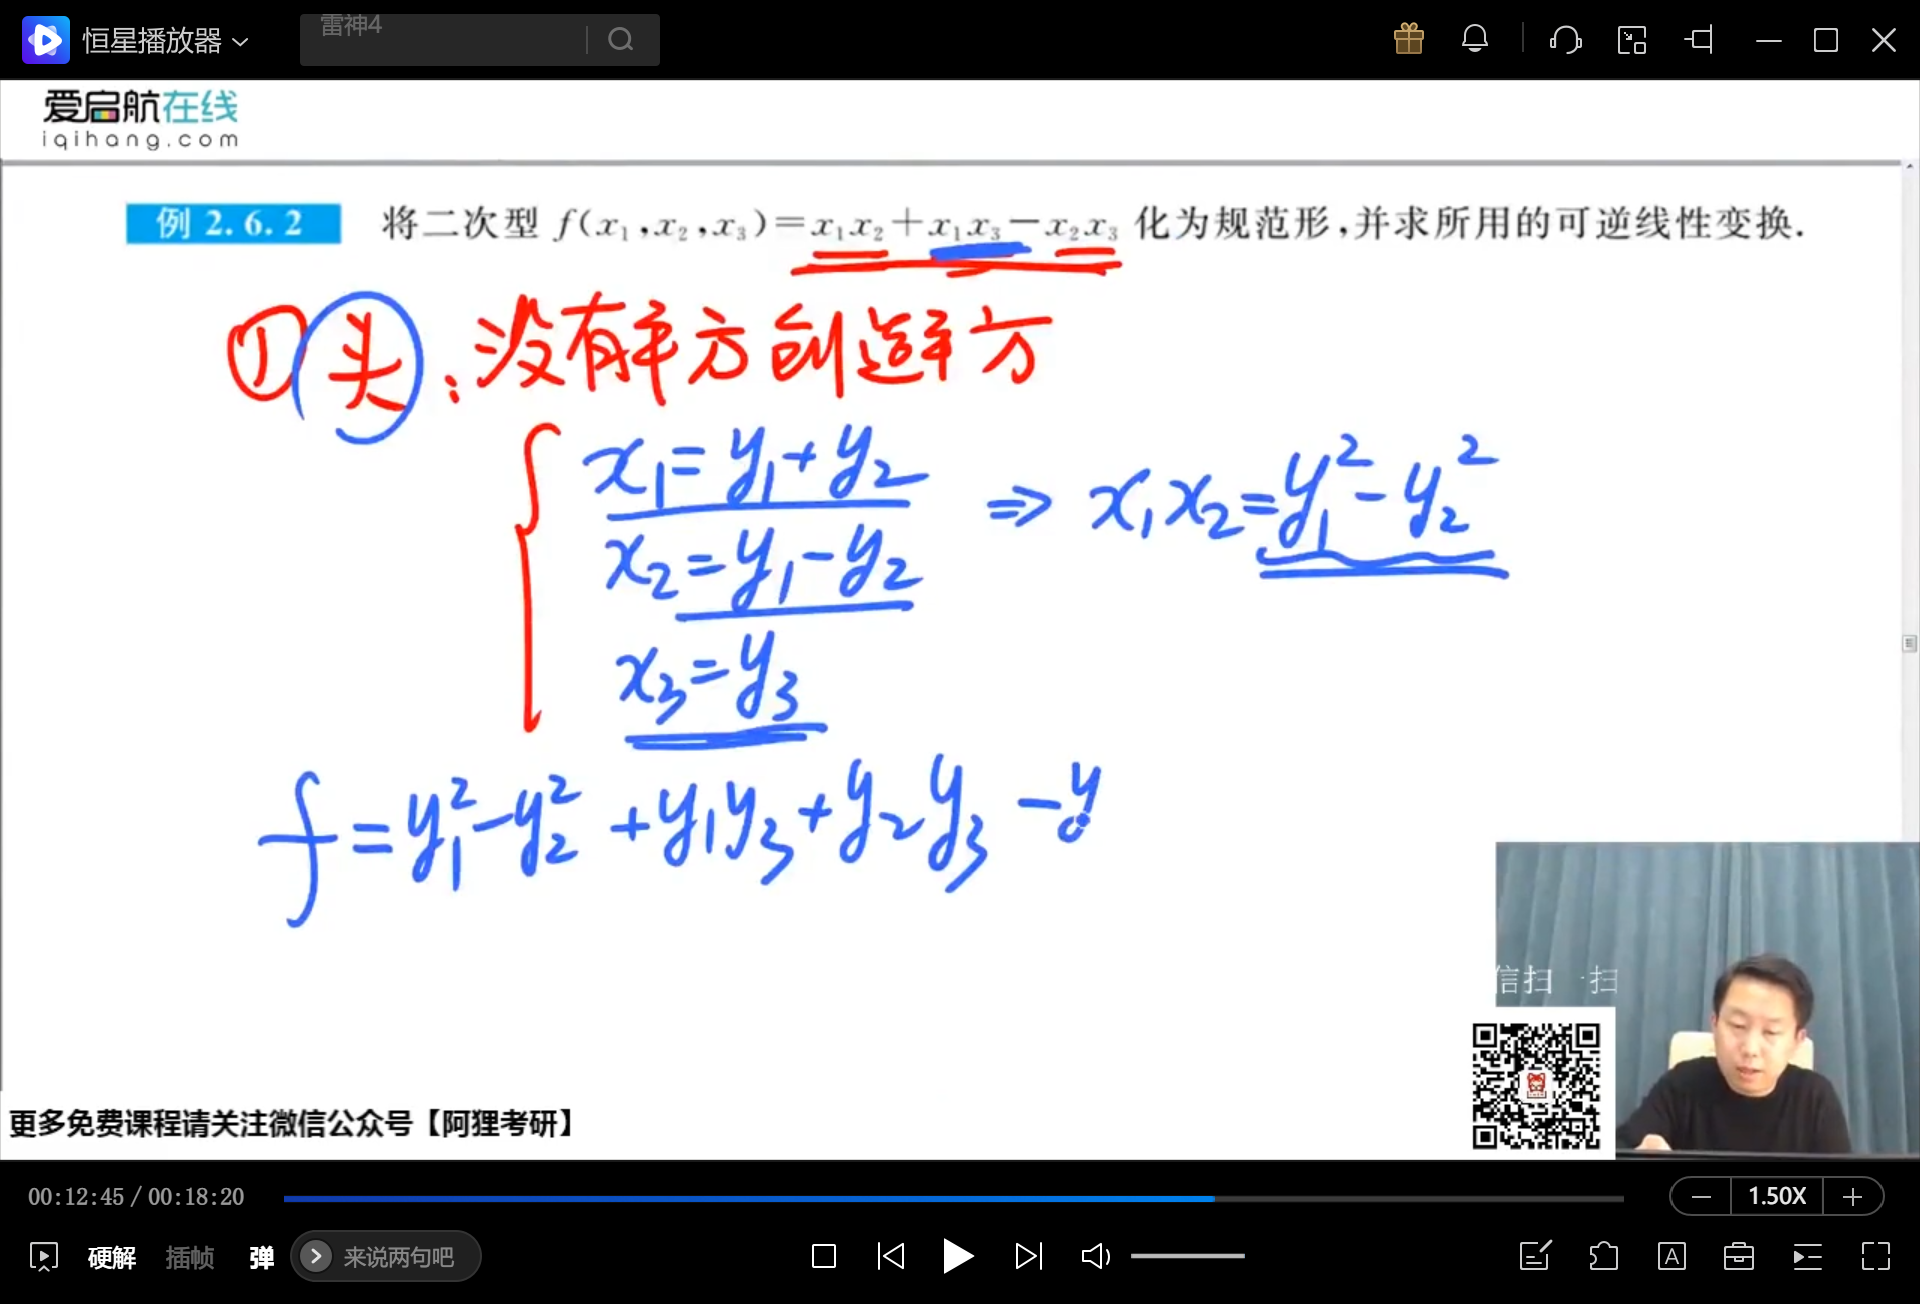 恒星播放器
雷神4
爱启航在线
iqihang.com
例 2.6.2 将二次型 f(x₁,x₂,x₃)=x₁x₂+x₁x₃-x₂x₃ 化为规范形,并求所用的可逆线性变换.
① 头:没有平方创造平方
x₁=y₁+y₂ ⇒ x₁x₂=y₁²-y₂²
x₂=y₁-y₂
x₃=y₃
f=y₁²-y₂²+y₁y₃+y₂y₃-y
信扫 扫
更多免费课程请关注微信公众号【阿狸考研】
00:12:45 / 00:18:20
1.50X
硬解 插帧 弹 来说两句吧
A